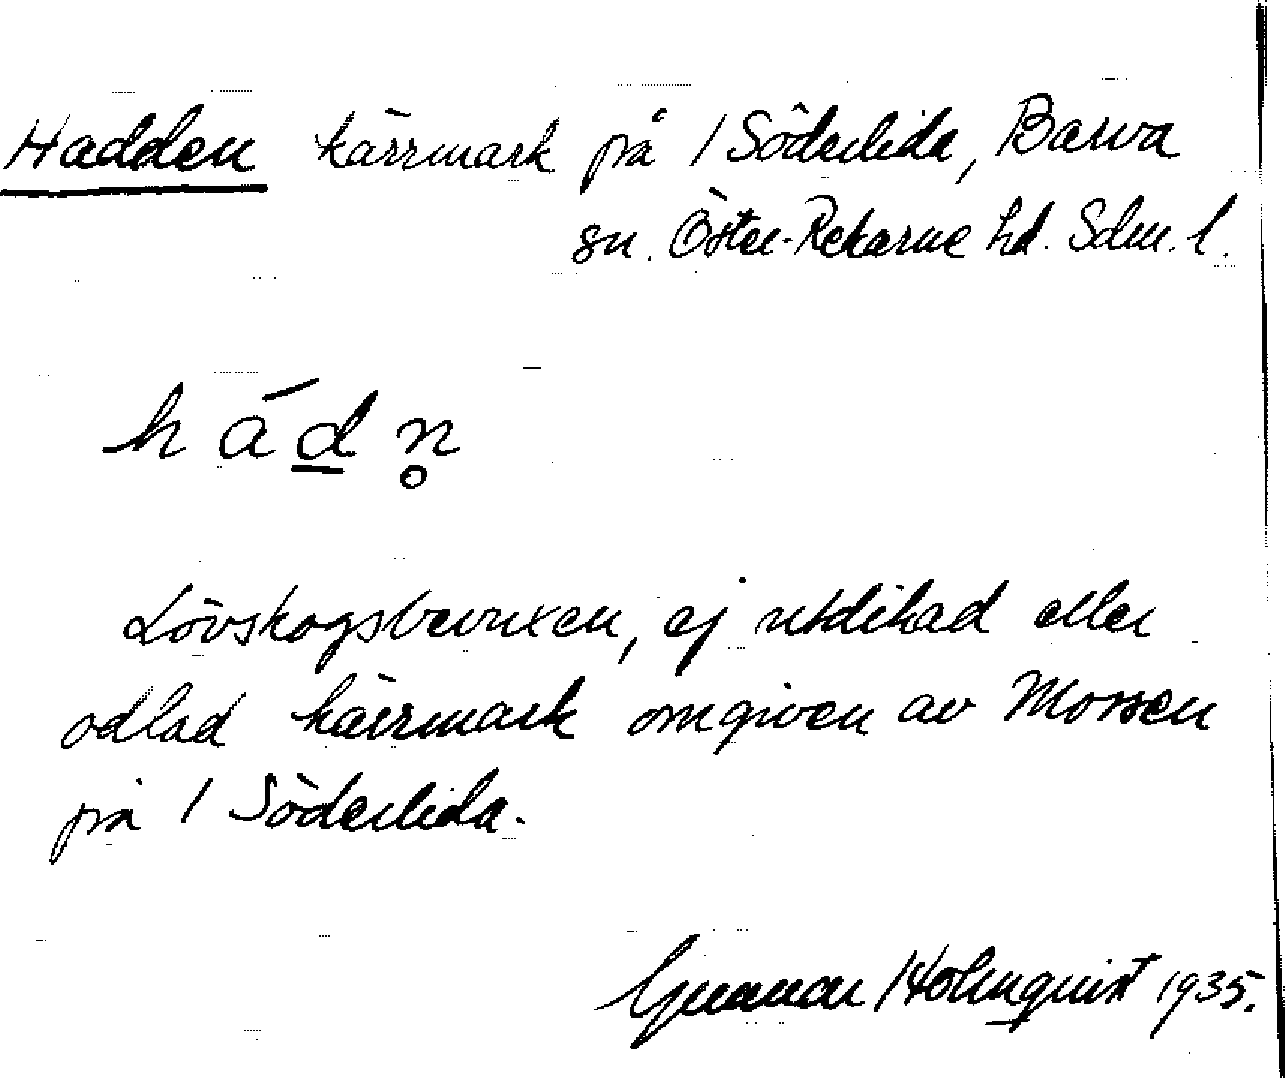 Hadden kärrmark på 1 Söderlida, Barva
sn. Öster-Rekarne hd. Sdm. l.
hádn̥
Lövskogsbevuxen, ej utdikad eller
odlad kärrmark omgiven av Mossen
på 1 Söderlida.
Gunnar Holmquist 1935.